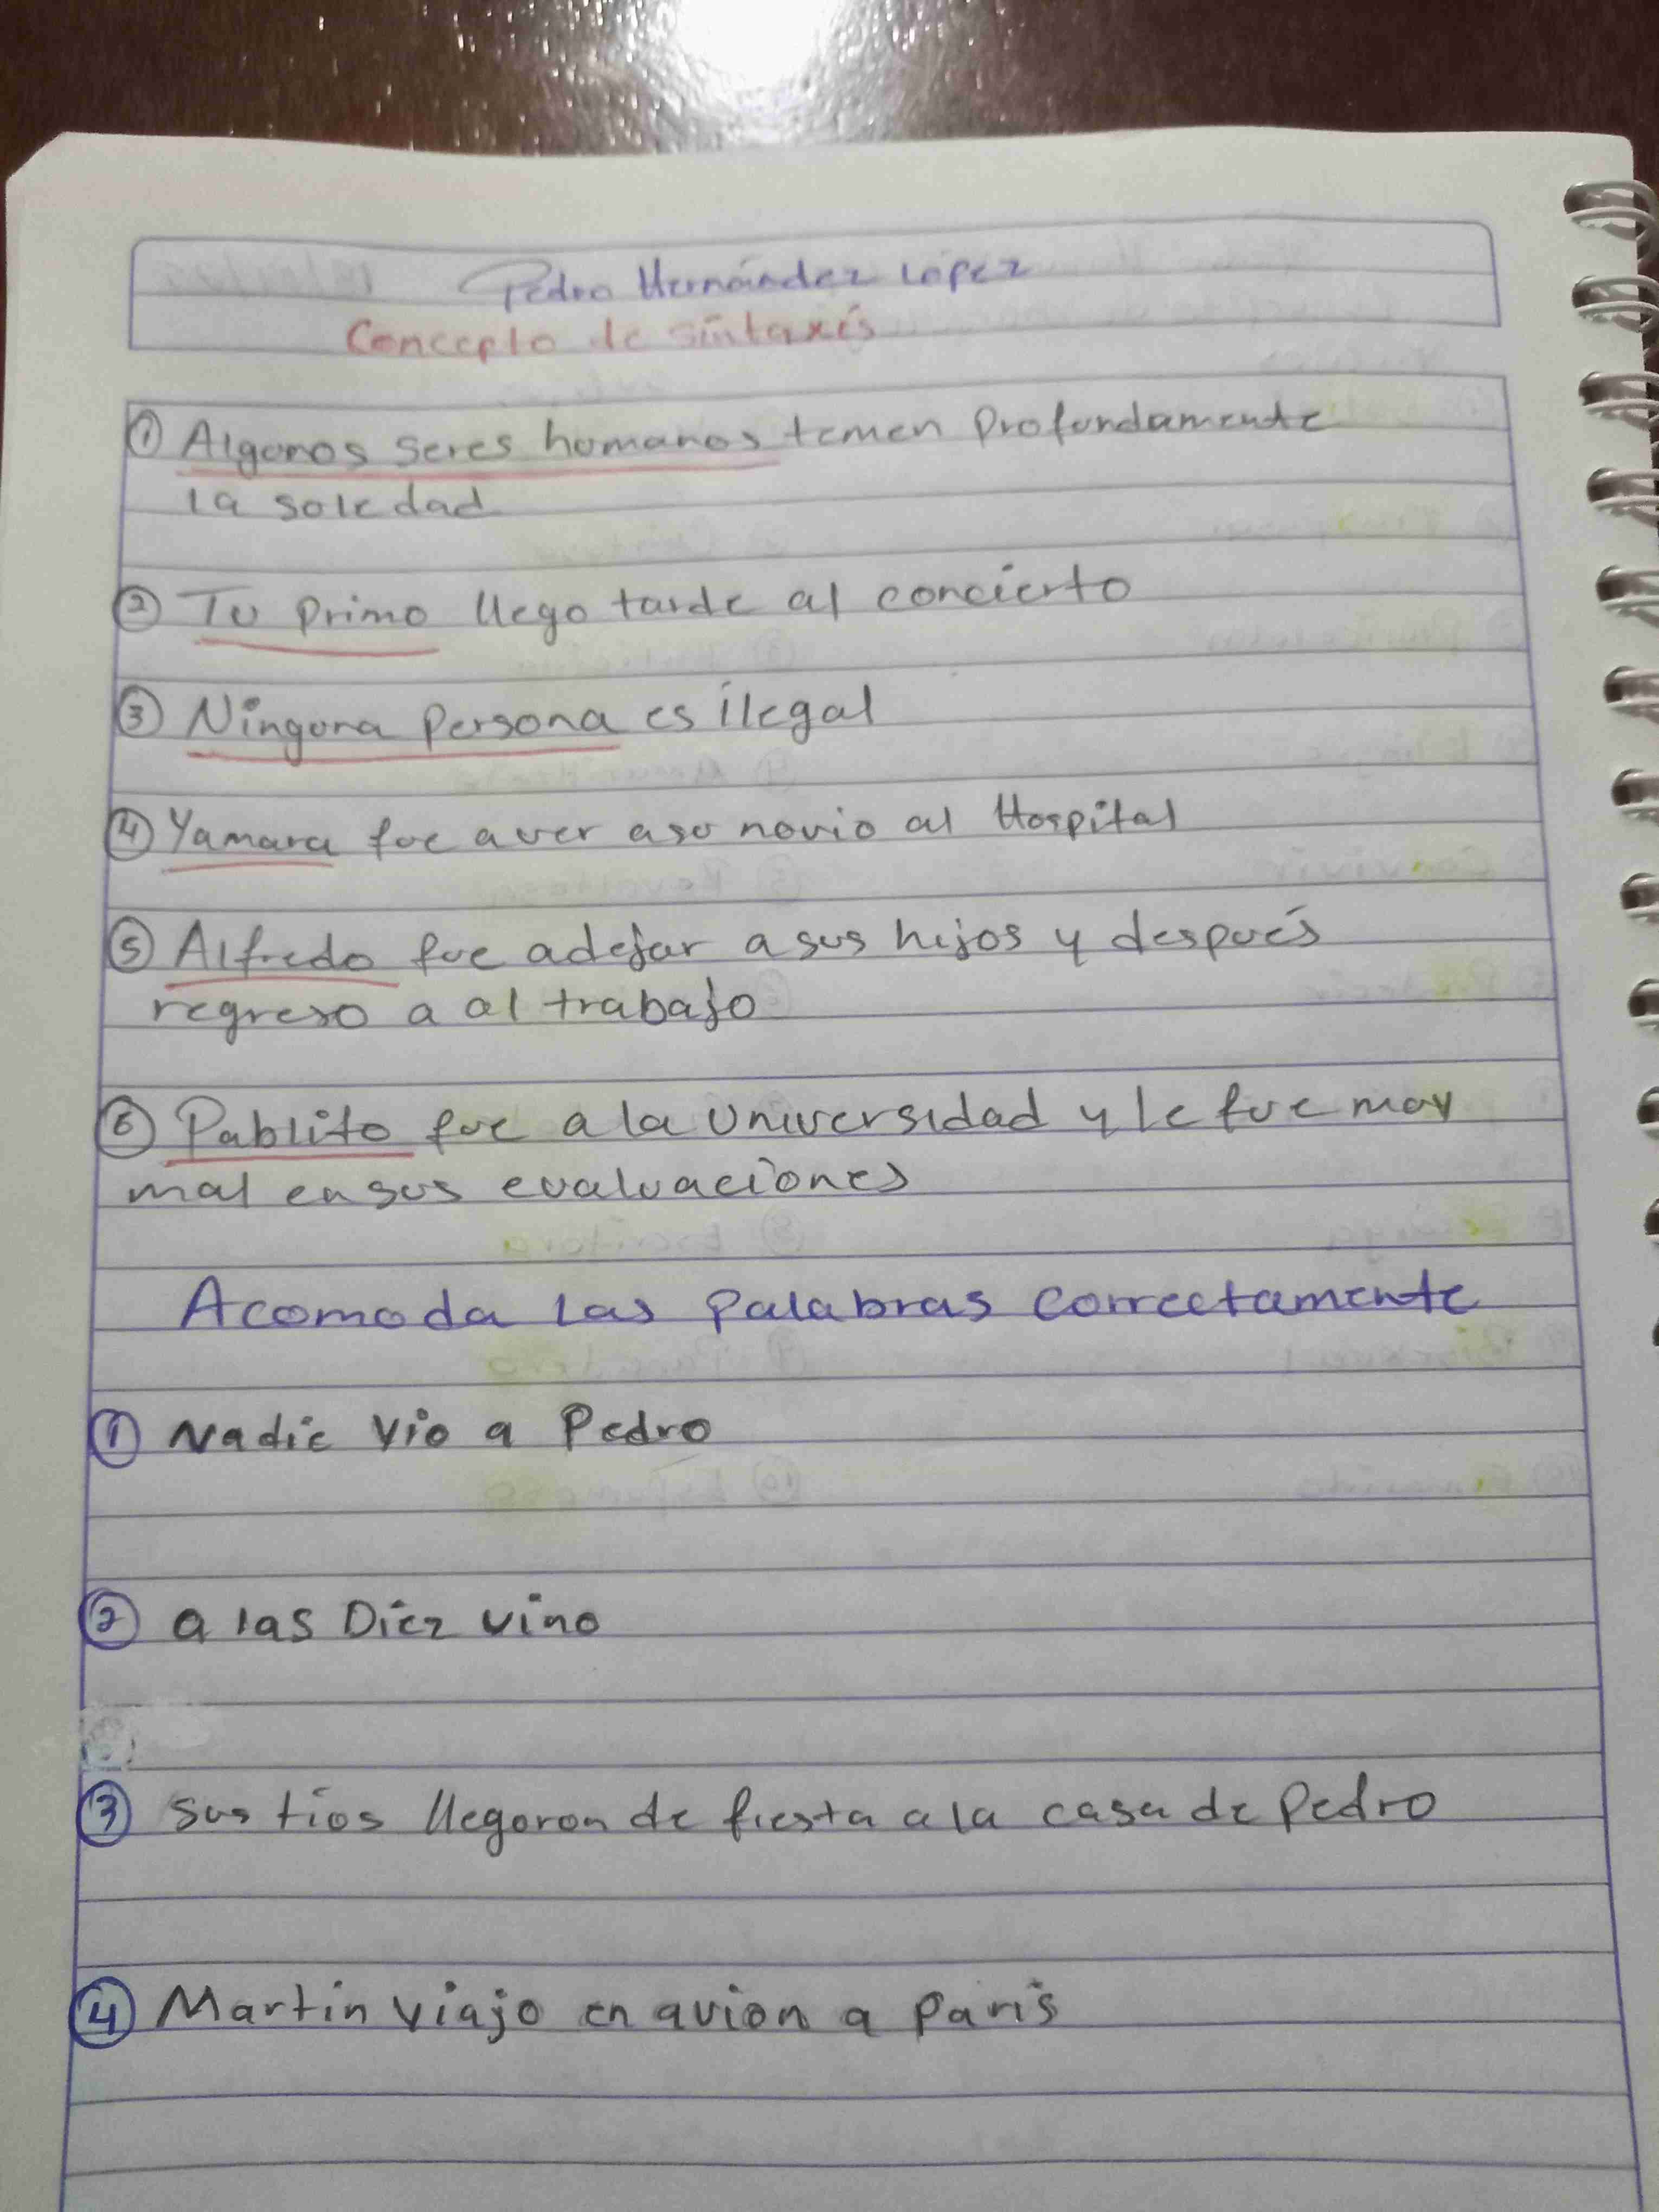 Pedro Hernández López
Concepto de sintaxis
① Algunos seres humanos temen profundamente
la soledad
② Tu primo llego tarde al concierto
③ Ninguna persona es ilegal
④ Yamara fue a ver a su novio al Hospital
⑤ Alfredo fue a dejar a sus hijos y después
regreso a al trabajo
⑥ Pablito fue a la Universidad y le fue muy
mal en sus evaluaciones
Acomoda las palabras correctamente
① Nadie vio a Pedro
② a las Diez vino
③ sus tios llegaron de fiesta a la casa de Pedro
④ Martin viajo en avion a Paris